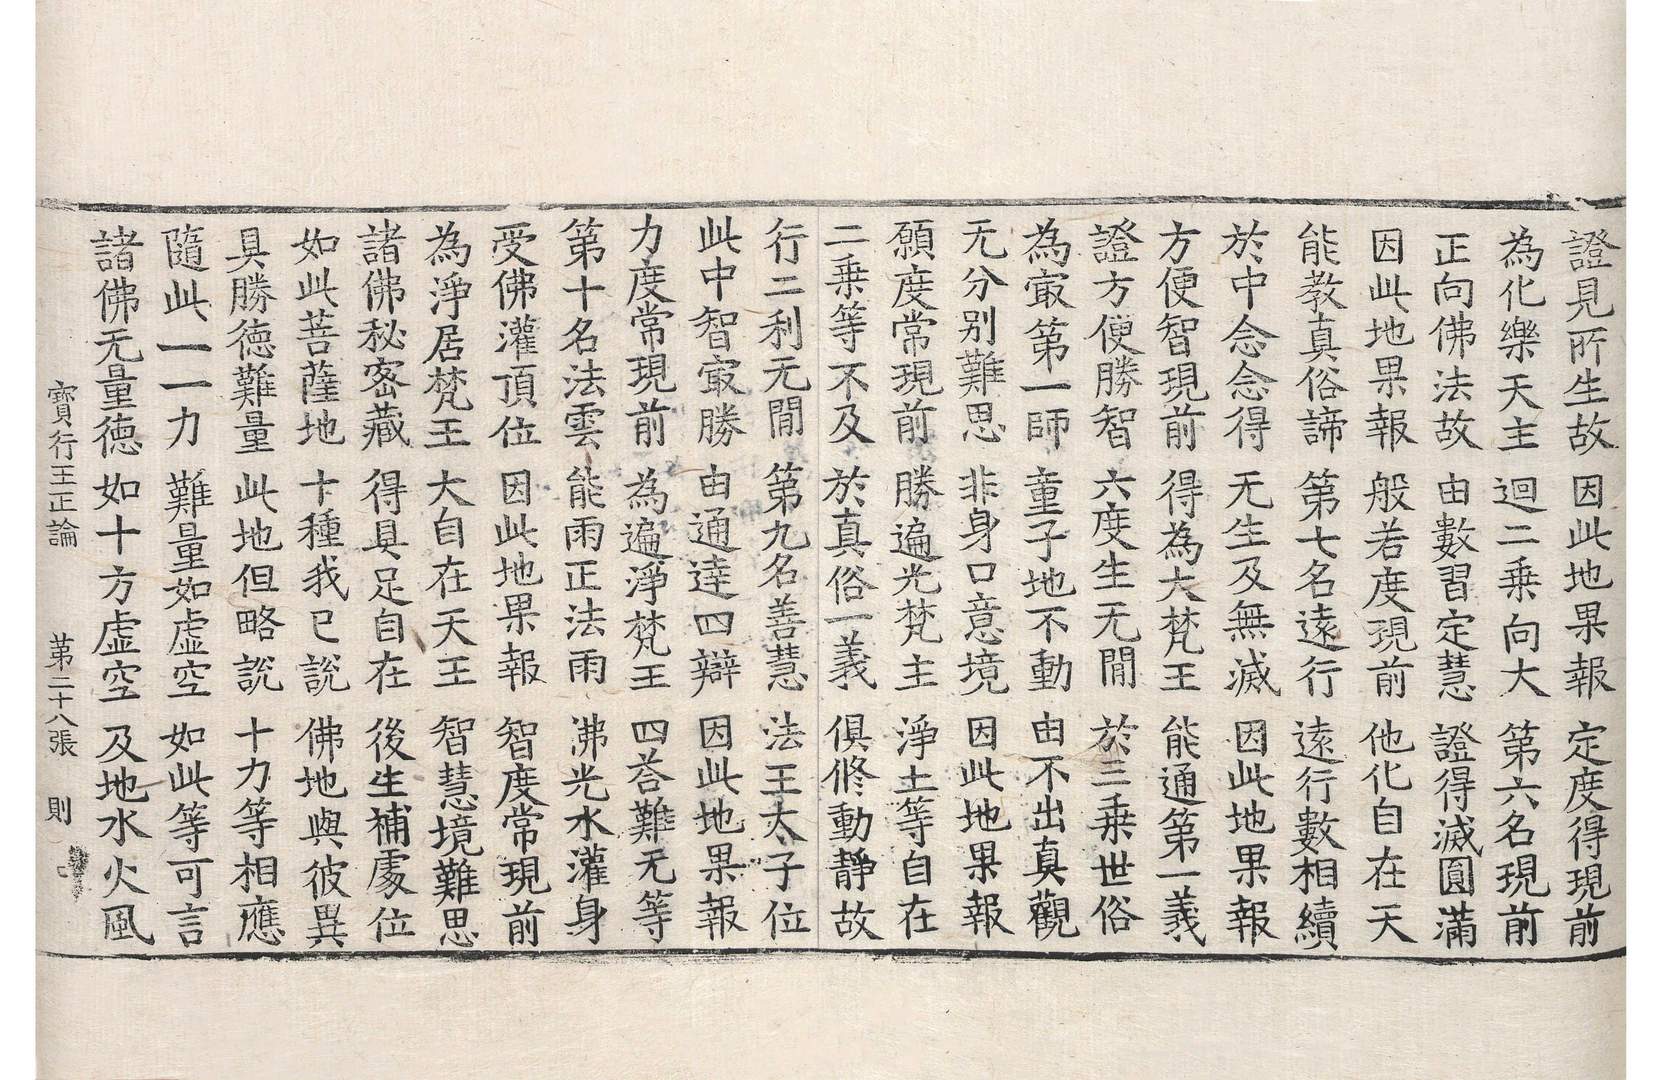 證見所生故 因此地果報 定度得現前
為化樂天主 迴二乘向大 第六名現前
正向佛法故 由數習定慧 證得滅圓滿
因此地果報 般若度現前 他化自在天
能教真俗諦 第七名遠行 遠行數相續
於中念念得 无生及無滅 因此地果報
方便智現前 得為大梵王 能通第一義
證方便勝智 六度生无間 於三乘世俗
為㝡第一師 童子地不動 由不出真觀
无分别難思 非身口意境 因此地果報
願度常現前 勝遍光梵主 淨土等自在
二乘等不及 於真俗一義 俱修動靜故
行二利无間 第九名善慧 法王太子位
此中智㝡勝 由通達四辯 因此地果報
力度常現前 為遍淨梵王 四荅難无等
第十名法雲 能雨正法雨 佛光水灌身
受佛灌頂位 因此地果報 智度常現前
為淨居梵王 大自在天王 智慧境難思
諸佛秘密藏 得具足自在 後生補處位
如此菩薩地 十種我已說 佛地與彼異
具勝德難量 此地但略說 十力等相應
隨此一一力 難量如虛空 如此等可言
諸佛无量德 如十方虛空 及地水火風
寶行王正論 第二十八張 則